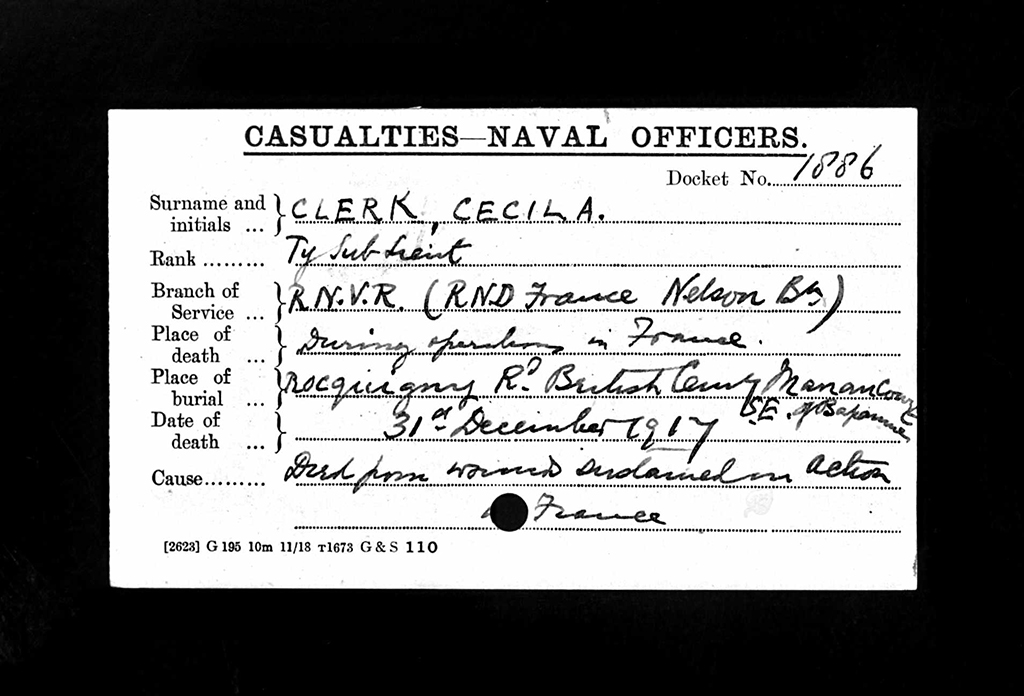 CASUALTIES—NAVAL OFFICERS.
Docket No. 1886
Surname and initials ... } CLERK, CECIL A.
Rank ......... Ty Sub Lieut
Branch of Service ... } R.N.V.R. (R.N.D France Nelson Bn)
Place of death ... } During operations in France.
Place of burial ... } Rocquigny Rd. British Cemty Manancourt
S.E. of Bapaume
Date of death ... } 31st December 1917
Cause ......... Died from wounds sustained in action
France
[2623] G 195 10m 11/18 T1673 G & S 110